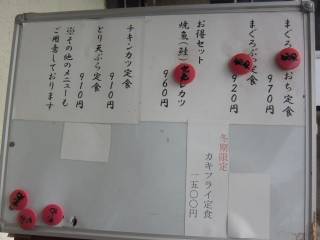 まぐろ おち定食
970円
まぐろ 定食
920円
お得セット
焼魚(鮭) カツ
960円
チキンカツ定食
910円
とり天ぷら定食
910円
※その他のメニューも
ご用意しております
冬期限定
カキフライ定食
一五〇〇円